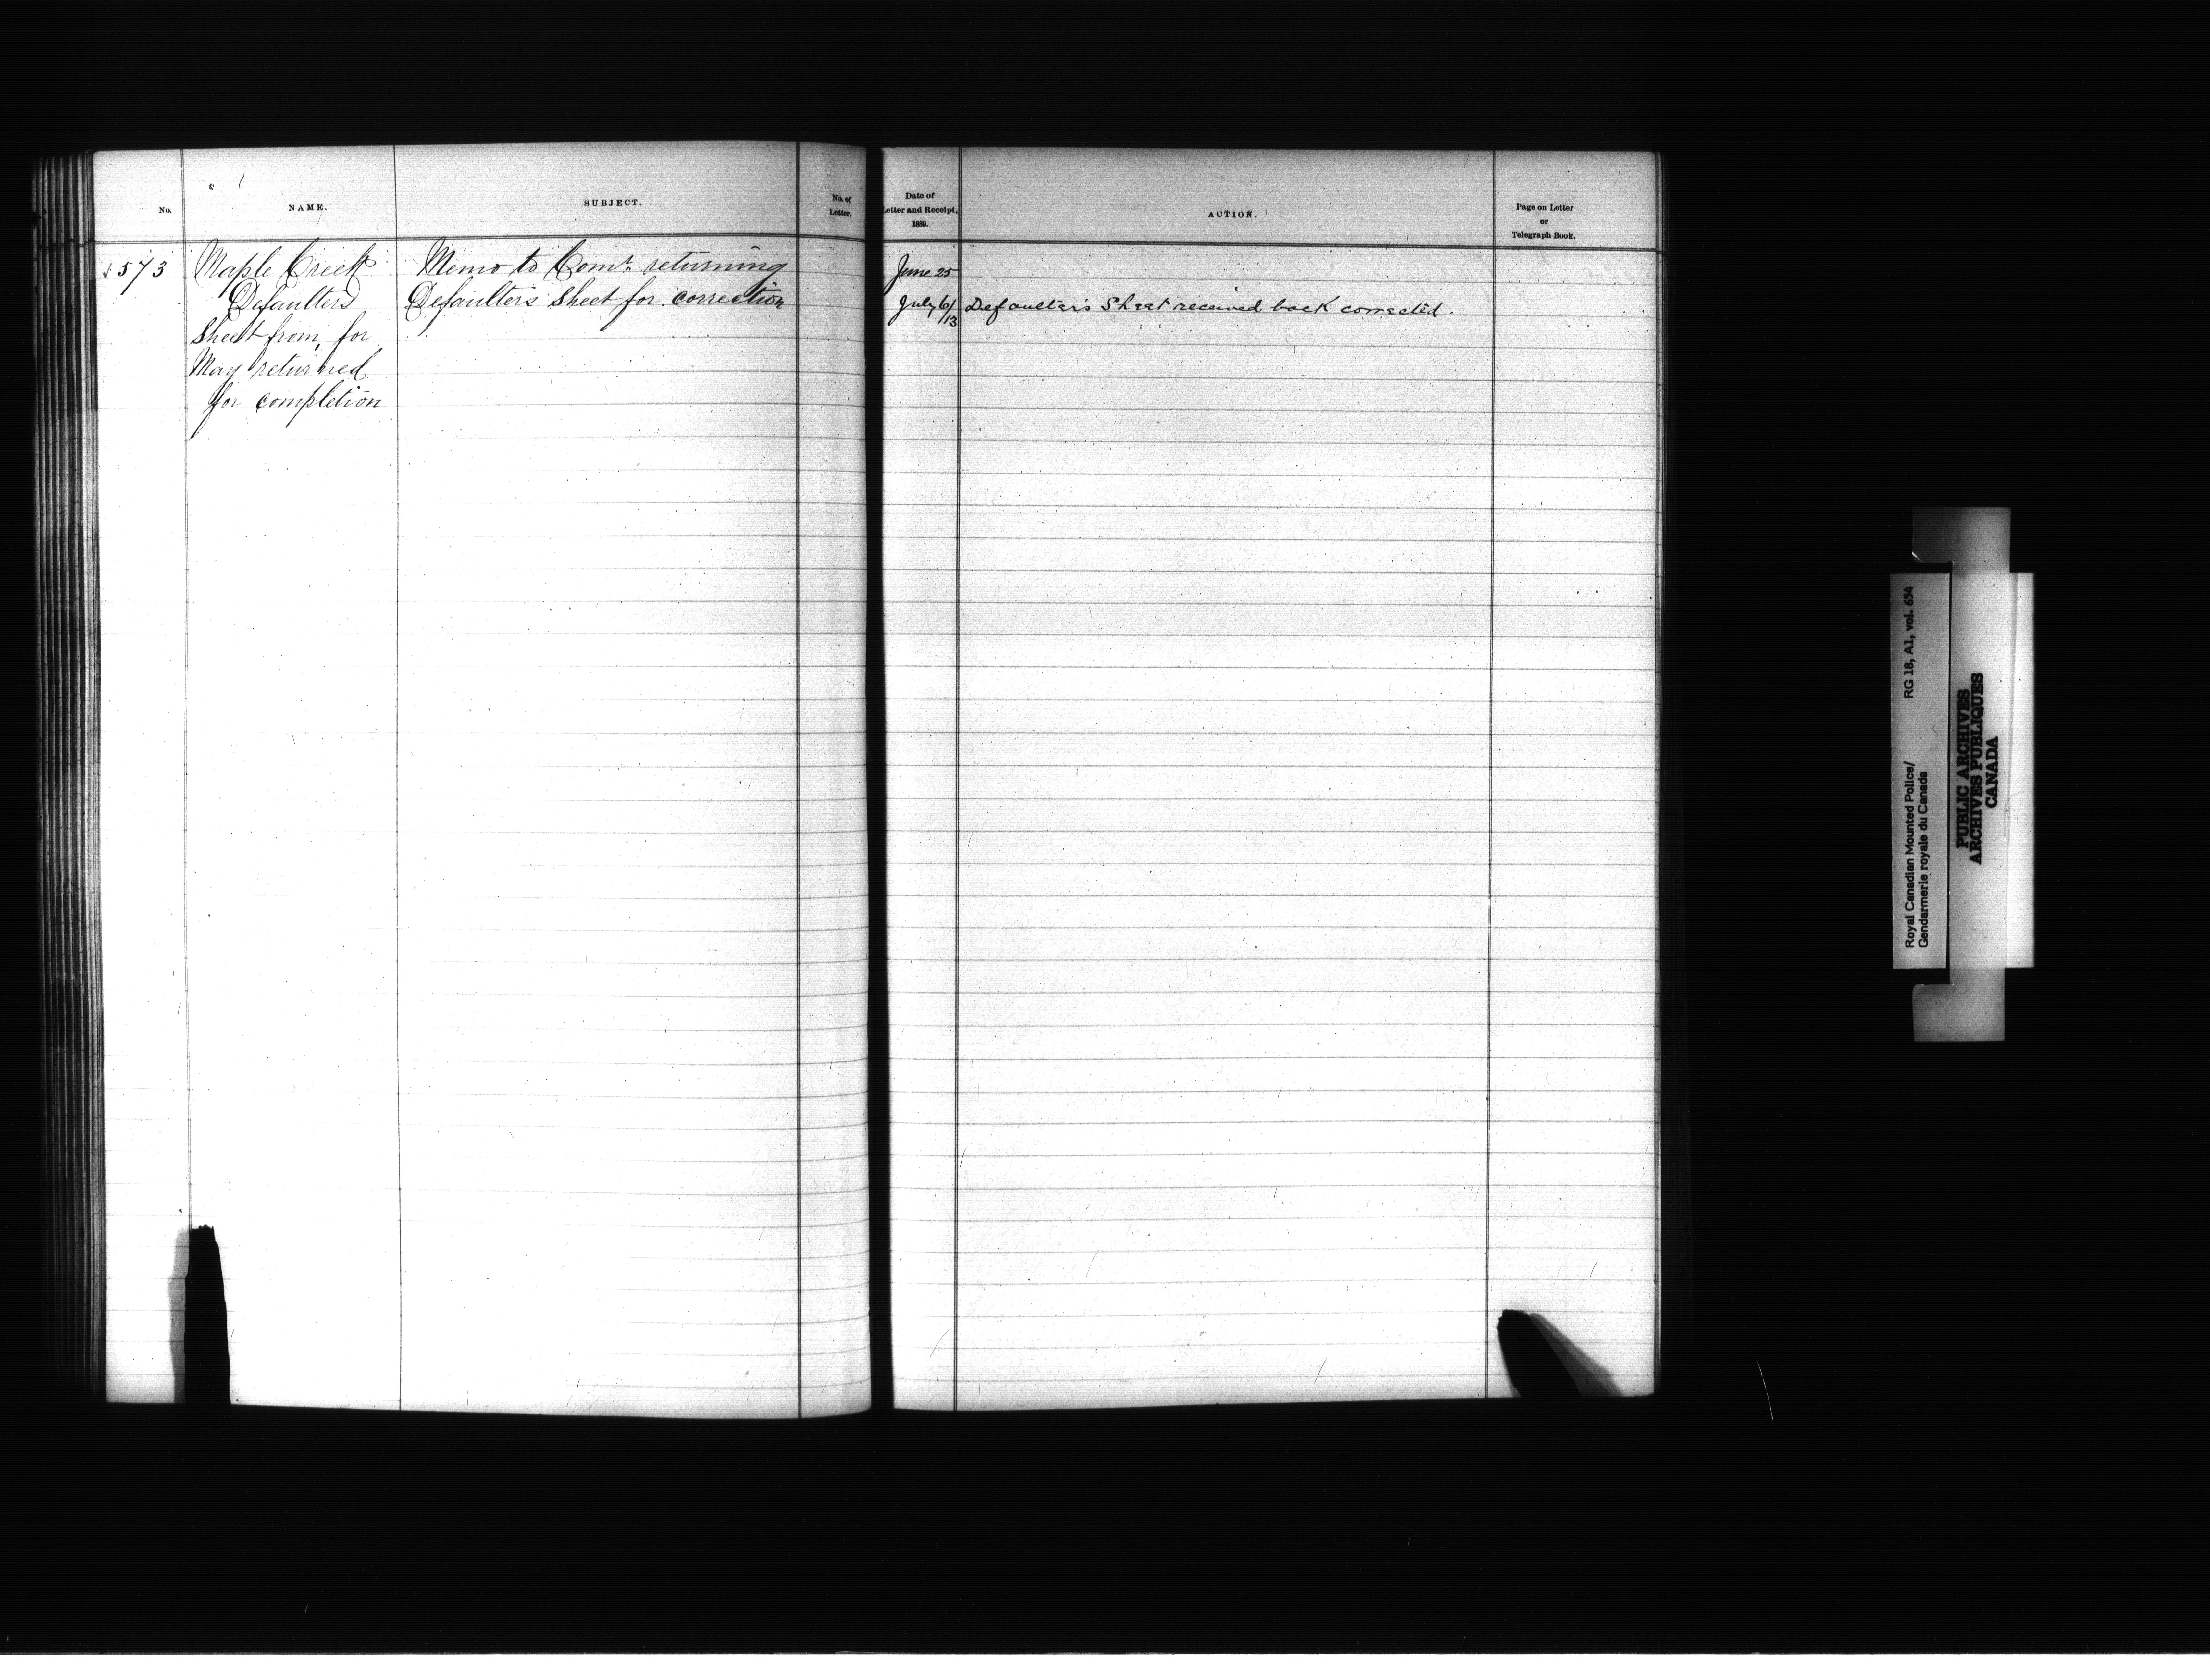 No.
NAME.
SUBJECT.
No. of
Letter.
573
Maple Creek
Defaulters
Sheet from, for
May returned
for completion
Memo to Comr. returning
Defaulter's Sheet for correction
Date of
Letter and Receipt,
1889.
ACTION.
Page on Letter
or
Telegraph Book.
June 25
July 6/13
Defaulter's Sheet received back corrected.
Royal Canadian Mounted Police/ RG 18, A1, vol. 654
Gendarmerie royale du Canada
PUBLIC ARCHIVES
ARCHIVES PUBLIQUES
CANADA